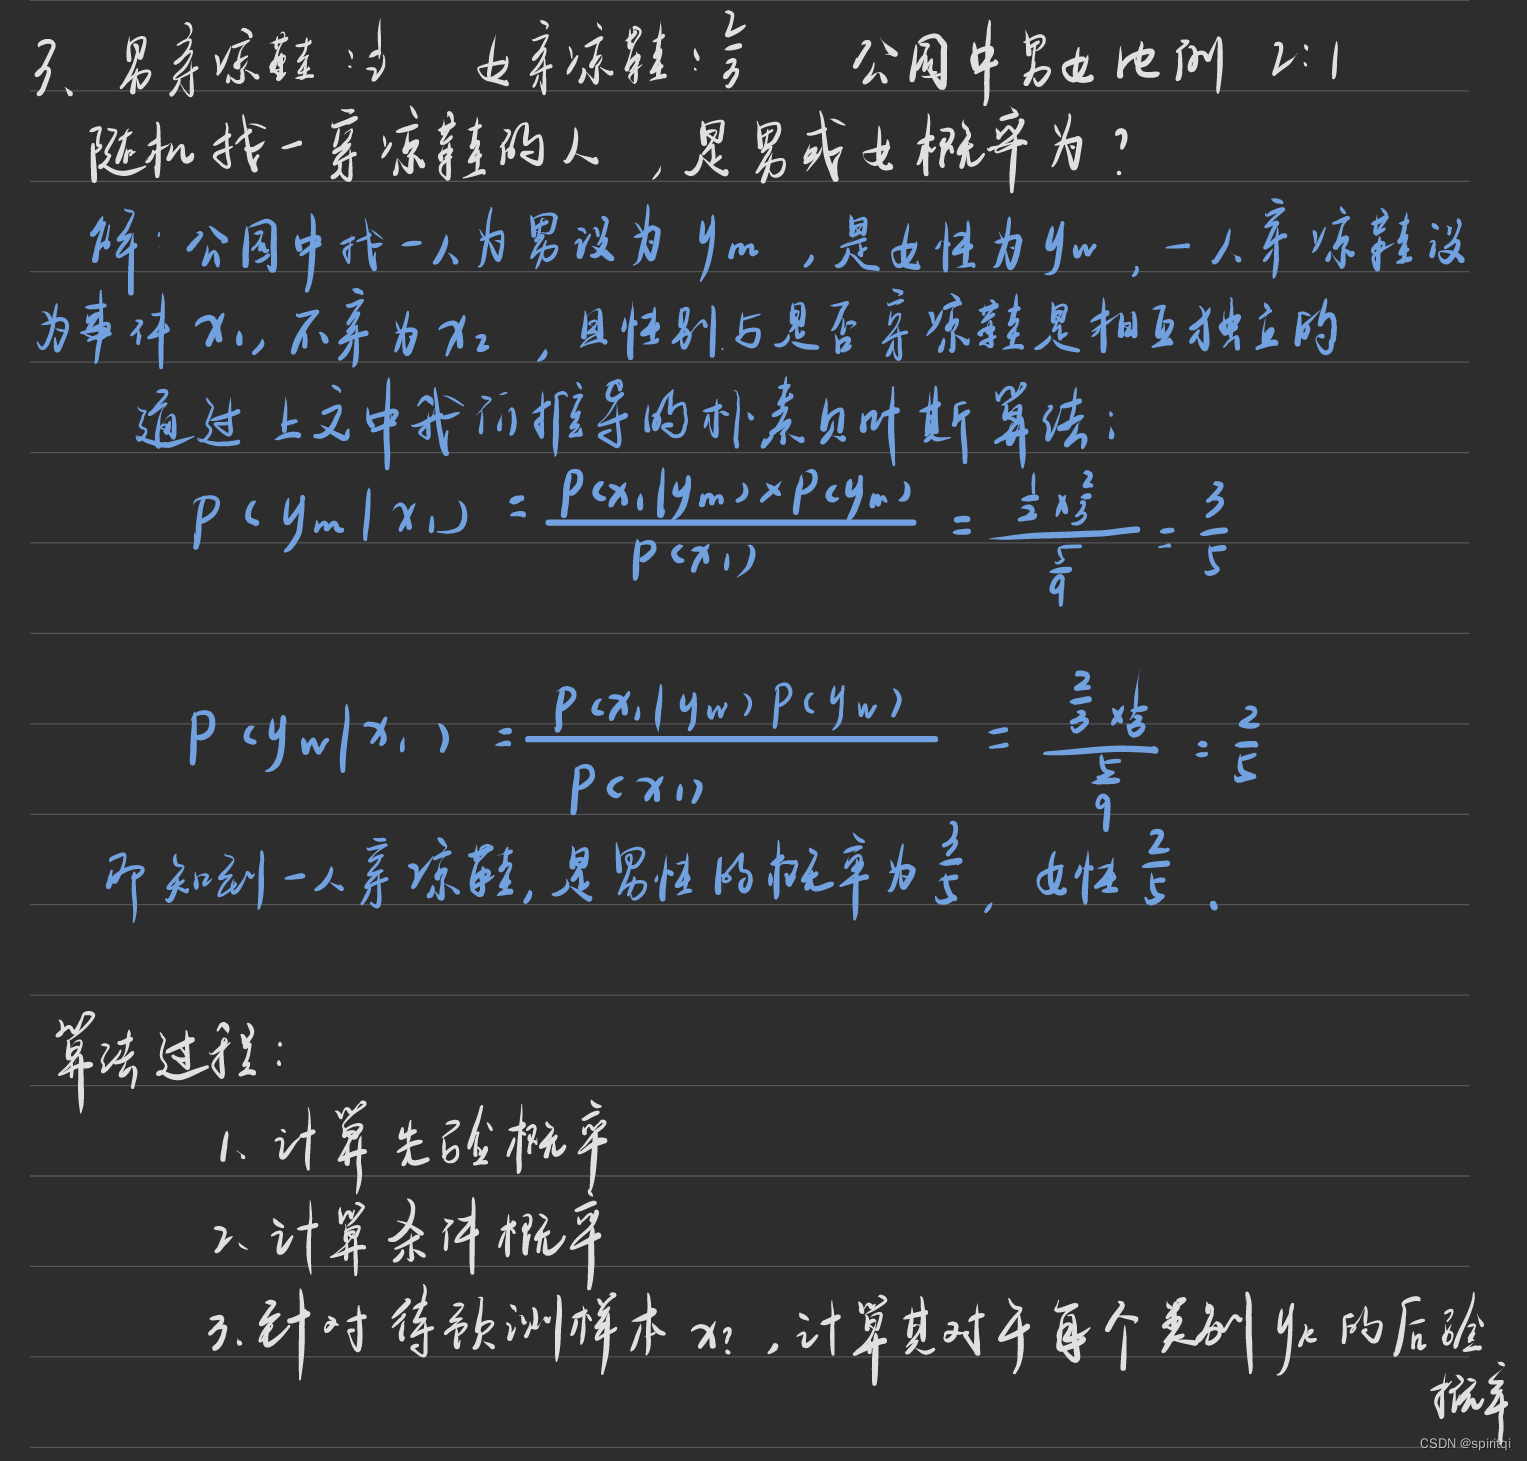 3、男穿凉鞋:½ 女穿凉鞋:2/3 公园中男女比例 2:1
随机找一穿凉鞋的人，是男或女概率为?
解:公园中找一人为男设为 yₘ，是女性为 y_w，一人穿凉鞋设
为事件 x₁，不穿为 x₂，且性别与是否穿凉鞋是相互独立的
通过上文中我们推导的朴素贝叶斯算法:
P(yₘ|x₁) = P(x₁|yₘ)×P(yₘ) / P(x₁) = (1/2 × 2/3) / (5/9) = 3/5
P(y_w|x₁) = P(x₁|y_w)P(y_w) / P(x₁) = (2/3 × 1/3) / (5/9) = 2/5
即知到一人穿凉鞋，是男性的概率为 3/5，女性 2/5.
算法过程:
1、计算先验概率
2、计算条件概率
3.针对待预测样本 x?，计算其对于每个类别 yₖ 的后验
概率
CSDN @spiritqi